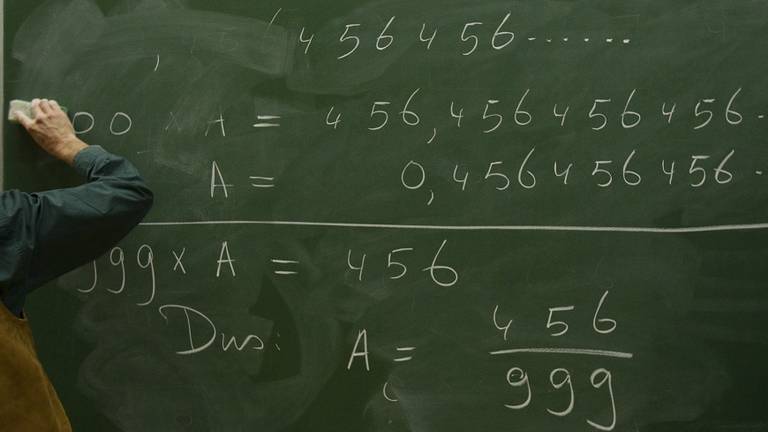 456456......
00 x A = 456,456456456.
A = 0,456456456..
999 x A = 456
Dus: A = 456/999